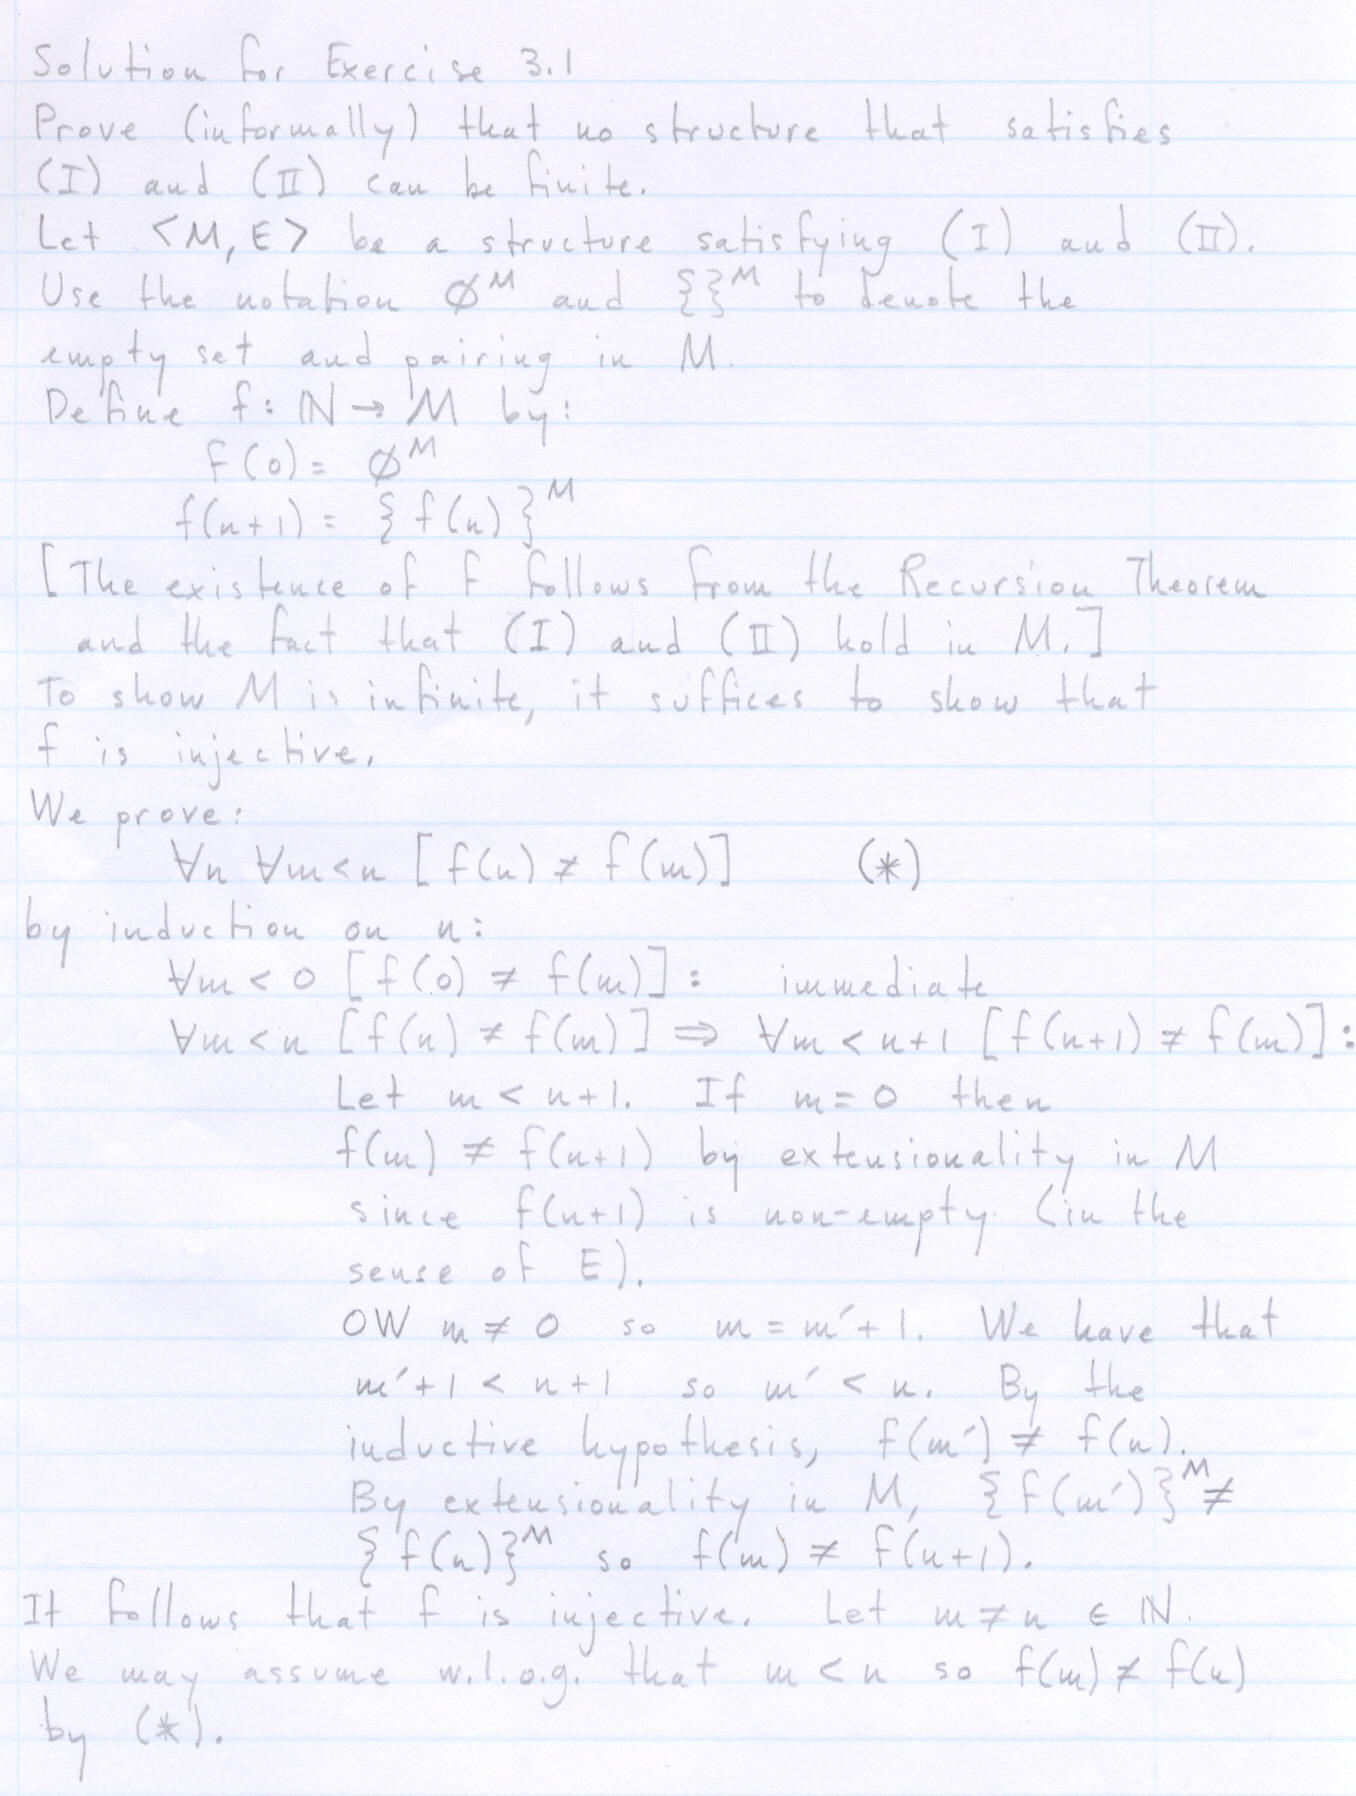 Solution for Exercise 3.1
Prove (informally) that no structure that satisfies
(I) and (II) can be finite.
Let <M, E> be a structure satisfying (I) and (II).
Use the notation ∅^M and {}^M to denote the
empty set and pairing in M.
Define f: ℕ → M by:
f(0) = ∅^M
f(n+1) = {f(n)}^M
[The existence of f follows from the Recursion Theorem
and the fact that (I) and (II) hold in M.]
To show M is infinite, it suffices to show that
f is injective.
We prove:
∀n ∀m<n [f(n) ≠ f(m)] (*)
by induction on n:
∀m < 0 [f(0) ≠ f(m)]: immediate
∀m < n [f(n) ≠ f(m)] ⇒ ∀m < n+1 [f(n+1) ≠ f(m)]:
Let m < n+1. If m = 0 then
f(m) ≠ f(n+1) by extensionality in M
since f(n+1) is non-empty (in the
sense of E).
OW m ≠ 0 so m = m′+1. We have that
m′+1 < n+1 so m′ < n. By the
inductive hypothesis, f(m′) ≠ f(n).
By extensionality in M, {f(m′)}^M ≠
{f(n)}^M so f(m) ≠ f(n+1).
It follows that f is injective. Let m ≠ n ∈ ℕ.
We may assume w.l.o.g. that m < n so f(m) ≠ f(n)
by (*).